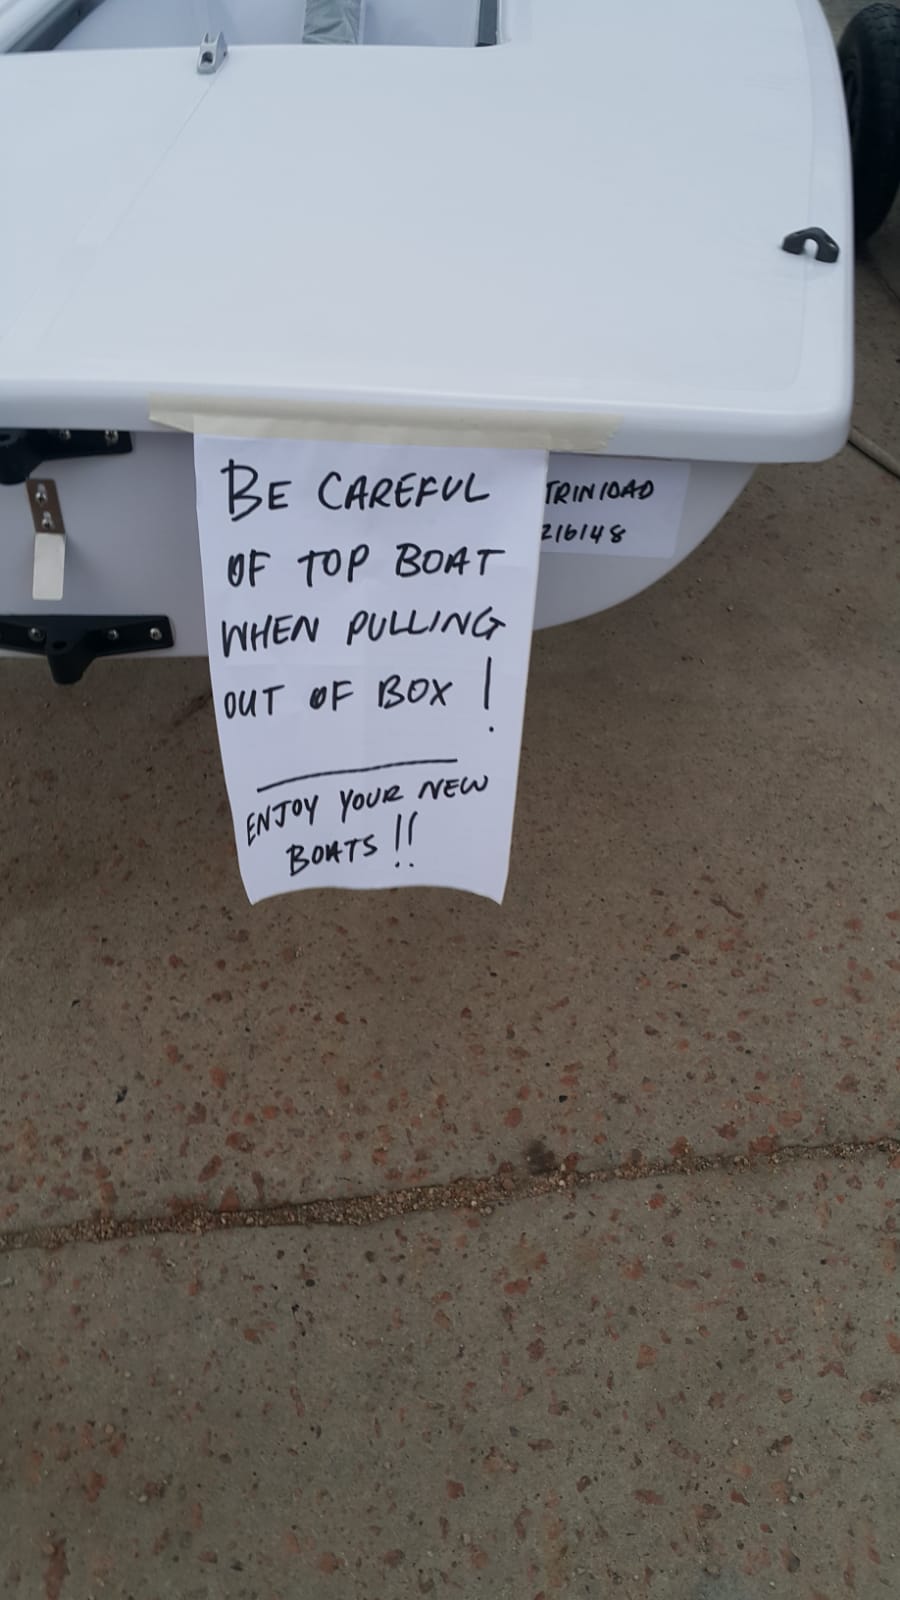 BE CAREFUL
OF TOP BOAT
WHEN PULLING
OUT OF BOX !
ENJOY YOUR NEW
BOATS !!
TRINIDAD
216148